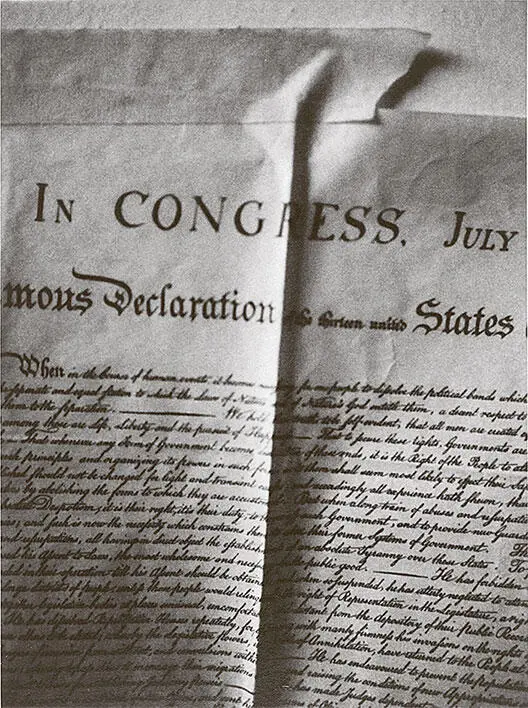 IN CONGRESS, JULY
mous Declaration the thirteen united States
When in the Course of human events, it becomes for one people to dissolve the political bands which
separate and equal station to which the Laws of Nature Nature's God entitle them, a decent respect
them to the separation. We hold self-evident, that all men are created
among these are Life, Liberty and the pursuit of Happ That to secure these rights, Governments are
That whenever any Form of Government becomes of these ends, it is the Right of the People to
principles and organizing its powers in such form them shall seem most likely to effect their Safe
should not be changed for light and transient accordingly all experience hath shewn, tha
by abolishing the forms to which they are accust But when a long train of abuses and usurpation
Despotism, it is their right, it is their duty, to Government, and to provide new Guards
and such is now the necessity which constrains the their former Systems of Government.
and usurpations, all having in direct object the establish absolute Tyranny over these States. To
his Assent to Laws, the most wholesome and nece public good. He has forbidden
in their operation till his Assent should be obtain when so suspended, he has utterly neglected to
large districts of people, unless those people would relin right of Representation in the Legislature, a
together legislative bodies at places unusual, uncomfor distant from the depository of their public Reco
He has dissolved Representative Houses repeatedly, for with manly firmness his invasions on the rights
the Legislative powers, Annihilation, have returned to the People at
and convulsions with He has endeavoured to prevent the Population
their migrations raising the conditions of new Appropriation
has made Judges dependent